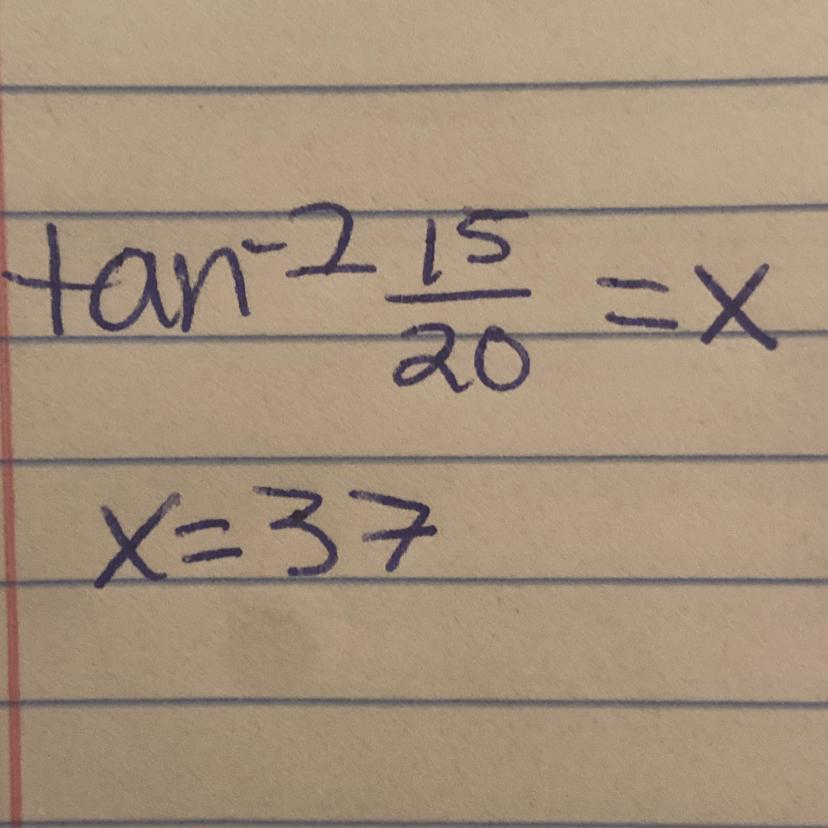 tan⁻² 15/20 = x
x = 37